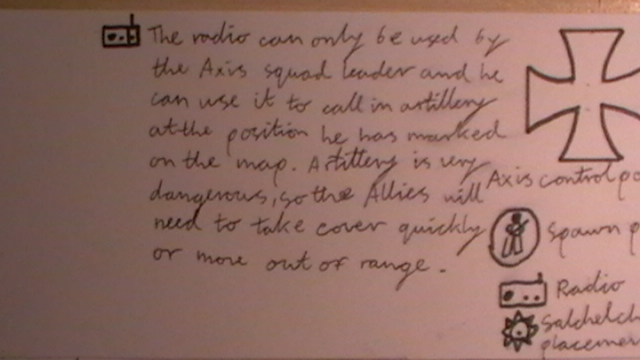 The radio can only be used by
the Axis squad leader and he
can use it to call in artillery
at the position he has marked
on the map. Artillery is very
dangerous, so the Allies will
need to take cover quickly
or more out of range.
Axis control po
Spawn p
Radio
Satchelch
placemen